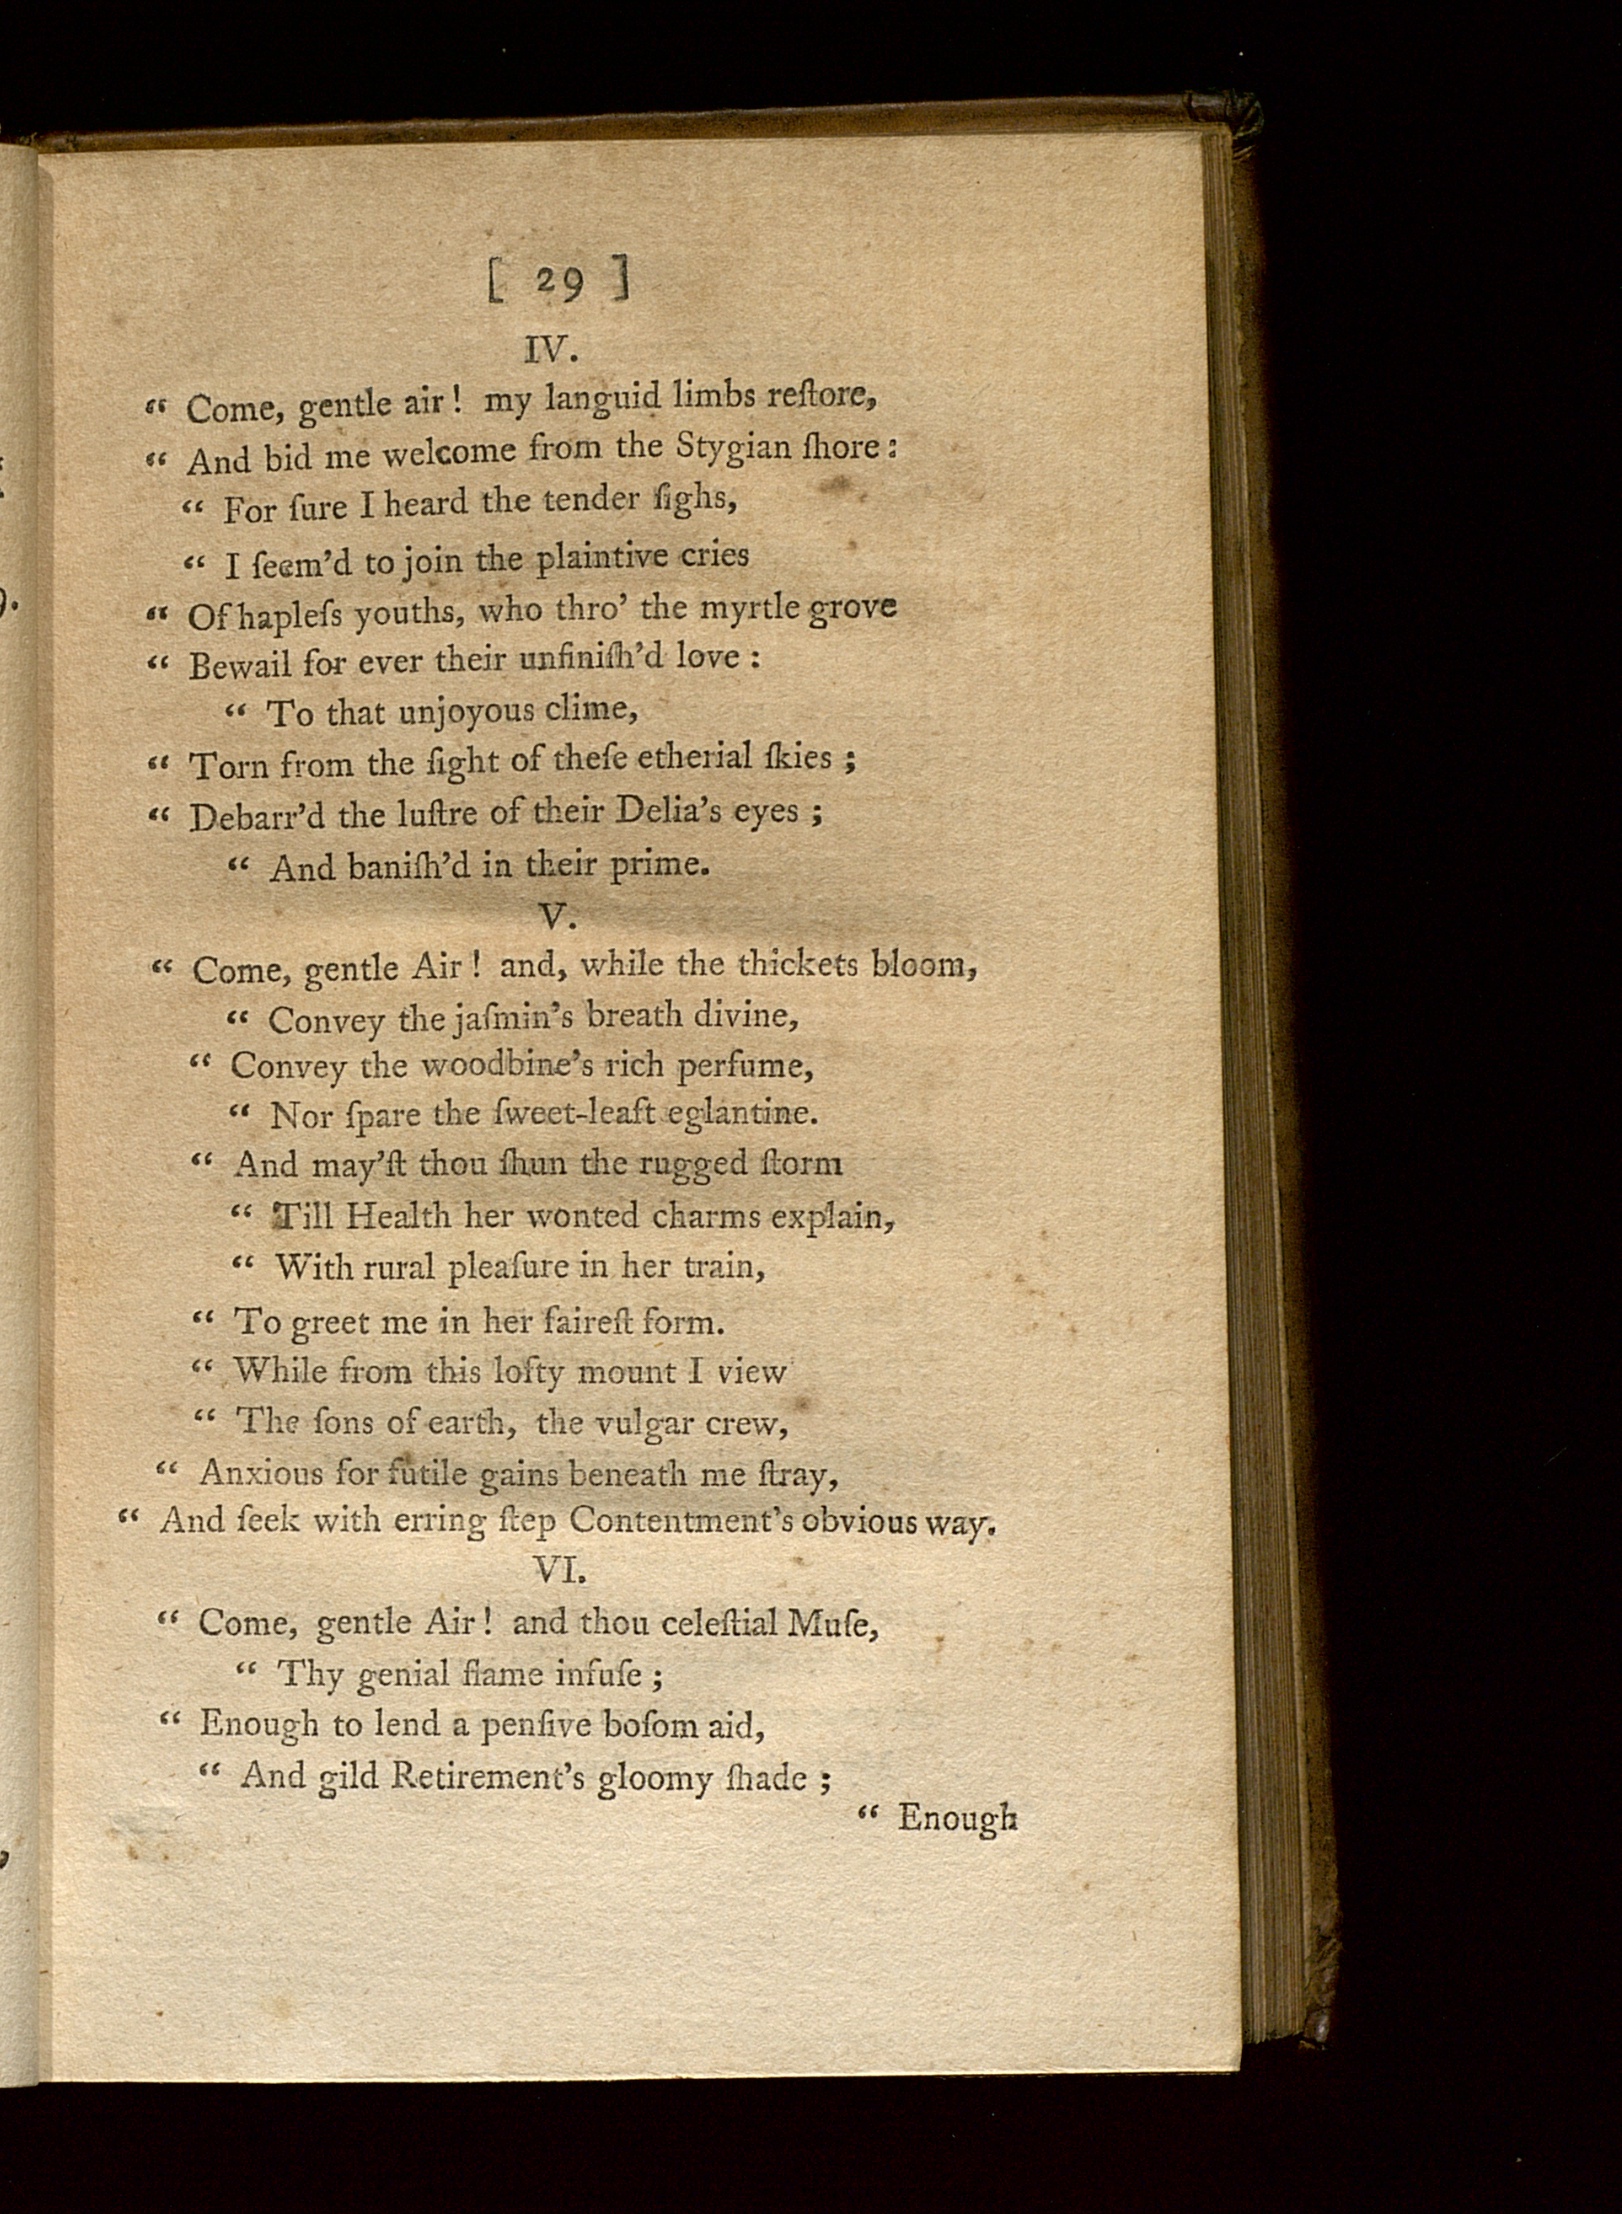 [ 29 ]
IV.
“ Come, gentle air! my languid limbs reſtore,
“ And bid me welcome from the Stygian ſhore:
“ For ſure I heard the tender ſighs,
“ I ſeem’d to join the plaintive cries
“ Of hapleſs youths, who thro’ the myrtle grove
“ Bewail for ever their unfiniſh’d love:
“ To that unjoyous clime,
“ Torn from the ſight of theſe etherial ſkies;
“ Debarr’d the luſtre of their Delia’s eyes;
“ And baniſh’d in their prime.
V.
“ Come, gentle Air! and, while the thickets bloom,
“ Convey the jaſmin’s breath divine,
“ Convey the woodbine’s rich perfume,
“ Nor ſpare the ſweet-leaft eglantine.
“ And may’ſt thou ſhun the rugged ſtorm
“ Till Health her wonted charms explain,
“ With rural pleaſure in her train,
“ To greet me in her faireſt form.
“ While from this lofty mount I view
“ The ſons of earth, the vulgar crew,
“ Anxious for futile gains beneath me ſtray,
“ And ſeek with erring ſtep Contentment’s obvious way.
VI.
“ Come, gentle Air! and thou celeſtial Muſe,
“ Thy genial flame infuſe;
“ Enough to lend a penſive boſom aid,
“ And gild Retirement’s gloomy ſhade;
“ Enough